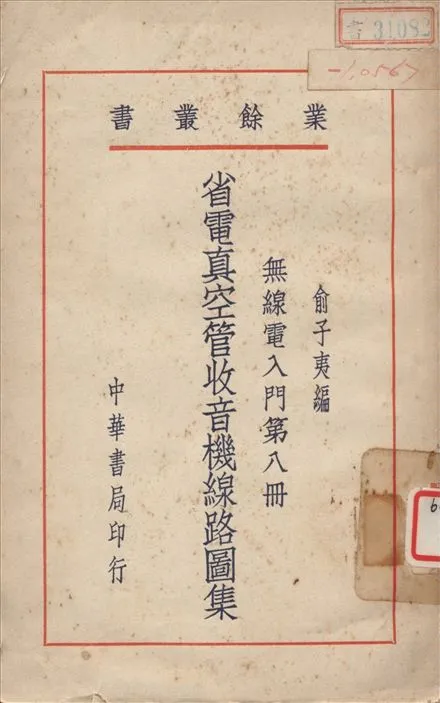 書 31082
-1.0567
業餘叢書
俞子夷編
無線電入門第八冊
省電真空管收音機線路圖集
中華書局印行
6